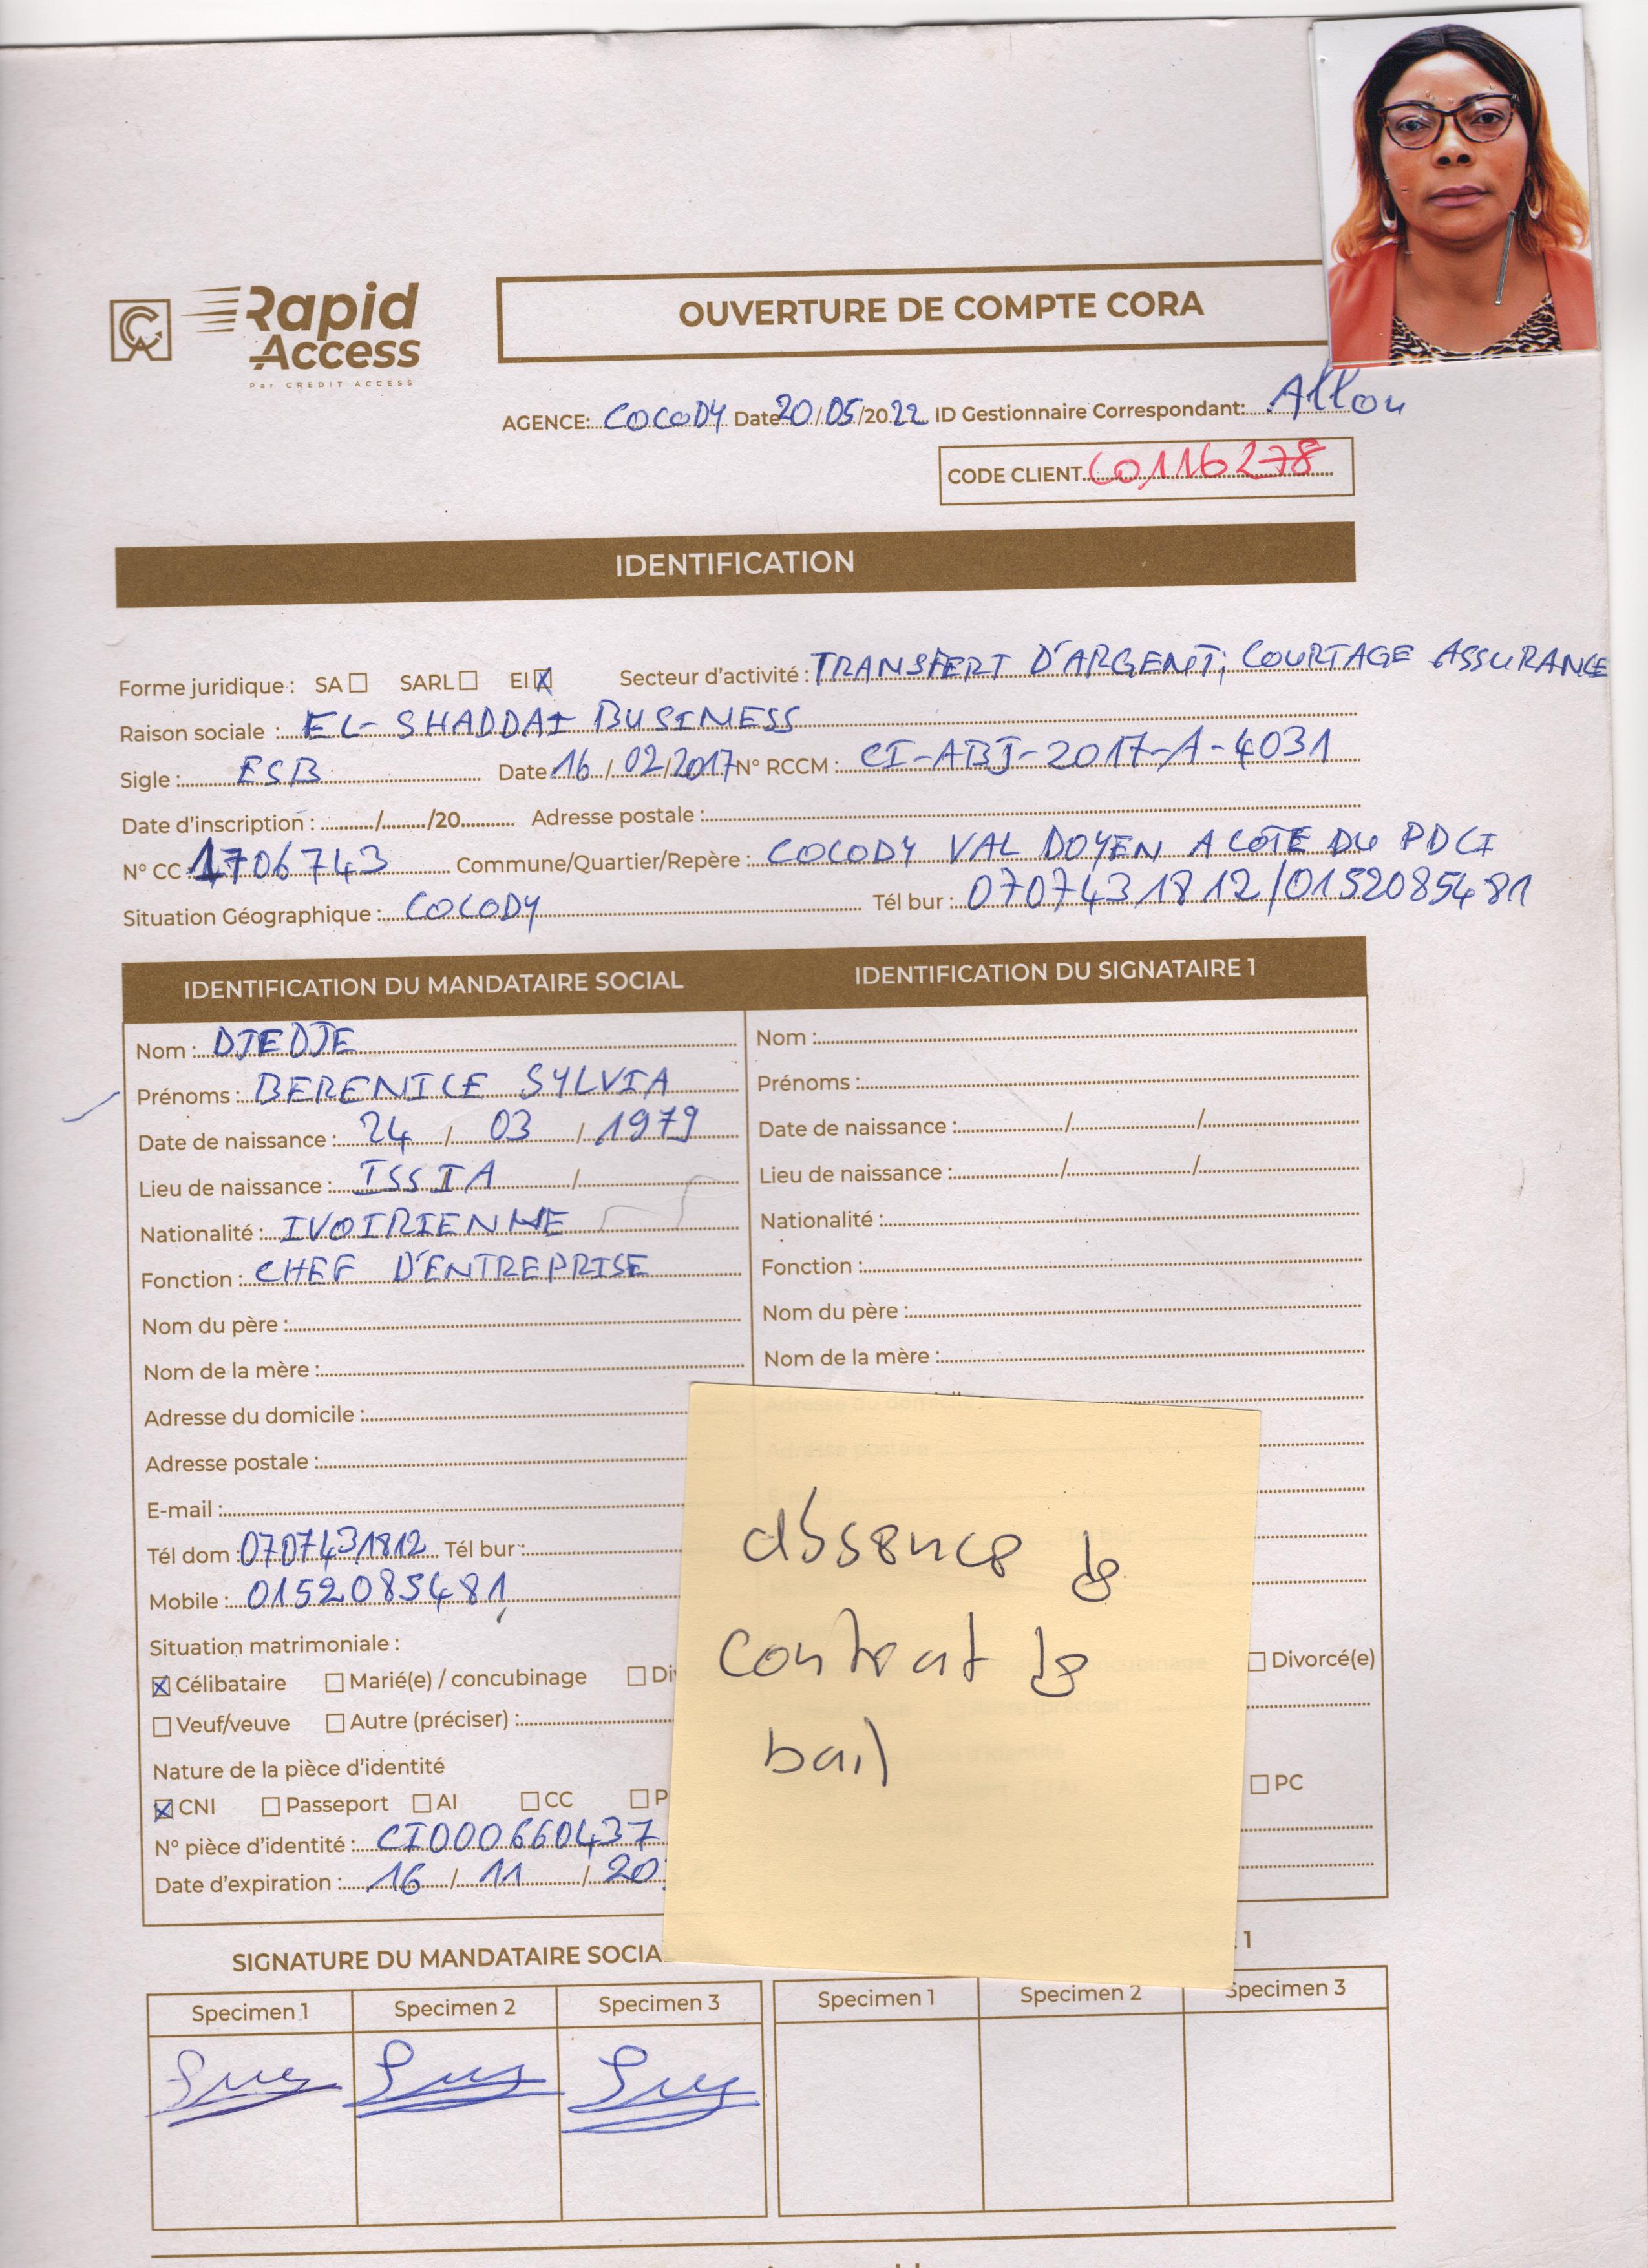 Rapid
Access
Par CREDIT ACCESS
OUVERTURE DE COMPTE CORA
AGENCE: COCODY Date 20/05/2022 ID Gestionnaire Correspondant: Allou
CODE CLIENT CO116278
IDENTIFICATION
Forme juridique : SA SARL EI X Secteur d'activité : TRANSFERT D'ARGENT, COURTAGE ASSURANCE
Raison sociale : EL-SHADDAI BUSINESS
Sigle : ESB Date 16/02/2017 N° RCCM : CI-ABJ-2017-A-4031
Date d'inscription : / /20 Adresse postale :
N° CC 1706743 Commune/Quartier/Repère : COCODY VAL DOYEN A COTE DU PDCI
Situation Géographique : COCODY Tél bur : 0707431812/0152085481
IDENTIFICATION DU MANDATAIRE SOCIAL
Nom : DJEDJE
Prénoms : BERENICE SYLVIA
Date de naissance : 24 / 03 / 1979
Lieu de naissance : ISSIA /
Nationalité : IVOIRIENNE
Fonction : CHEF D'ENTREPRISE
Nom du père :
Nom de la mère :
Adresse du domicile :
Adresse postale :
E-mail :
Tél dom : 0707431812 Tél bur :
Mobile : 0152085481
Situation matrimoniale :
X Célibataire Marié(e) / concubinage Di
Veuf/veuve Autre (préciser) :
Nature de la pièce d'identité
X CNI Passeport AI CC P
N° pièce d'identité : CI000660437
Date d'expiration : 16 / 11 / 20
IDENTIFICATION DU SIGNATAIRE 1
Nom :
Prénoms :
Date de naissance : / /
Lieu de naissance : / /
Nationalité :
Fonction :
Nom du père :
Nom de la mère :
Divorcé(e)
PC
absence de
contrat de
bail
SIGNATURE DU MANDATAIRE SOCIA
Specimen 1 Specimen 2 Specimen 3
1
Specimen 1 Specimen 2 Specimen 3